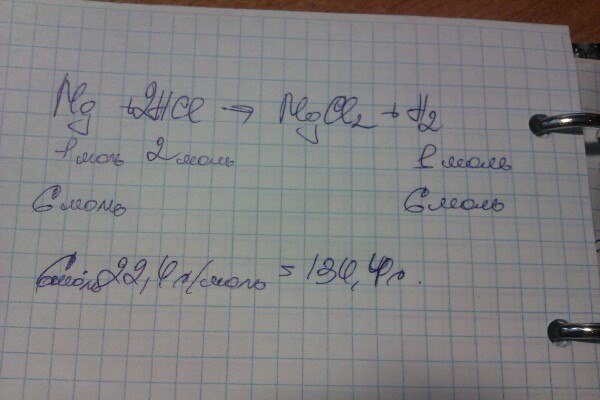 Mg + 2HCl → MgCl₂ + H₂
1 моль 2 моль 1 моль
6 моль 6 моль
6 моль 22,4 л/моль = 134,4 л.